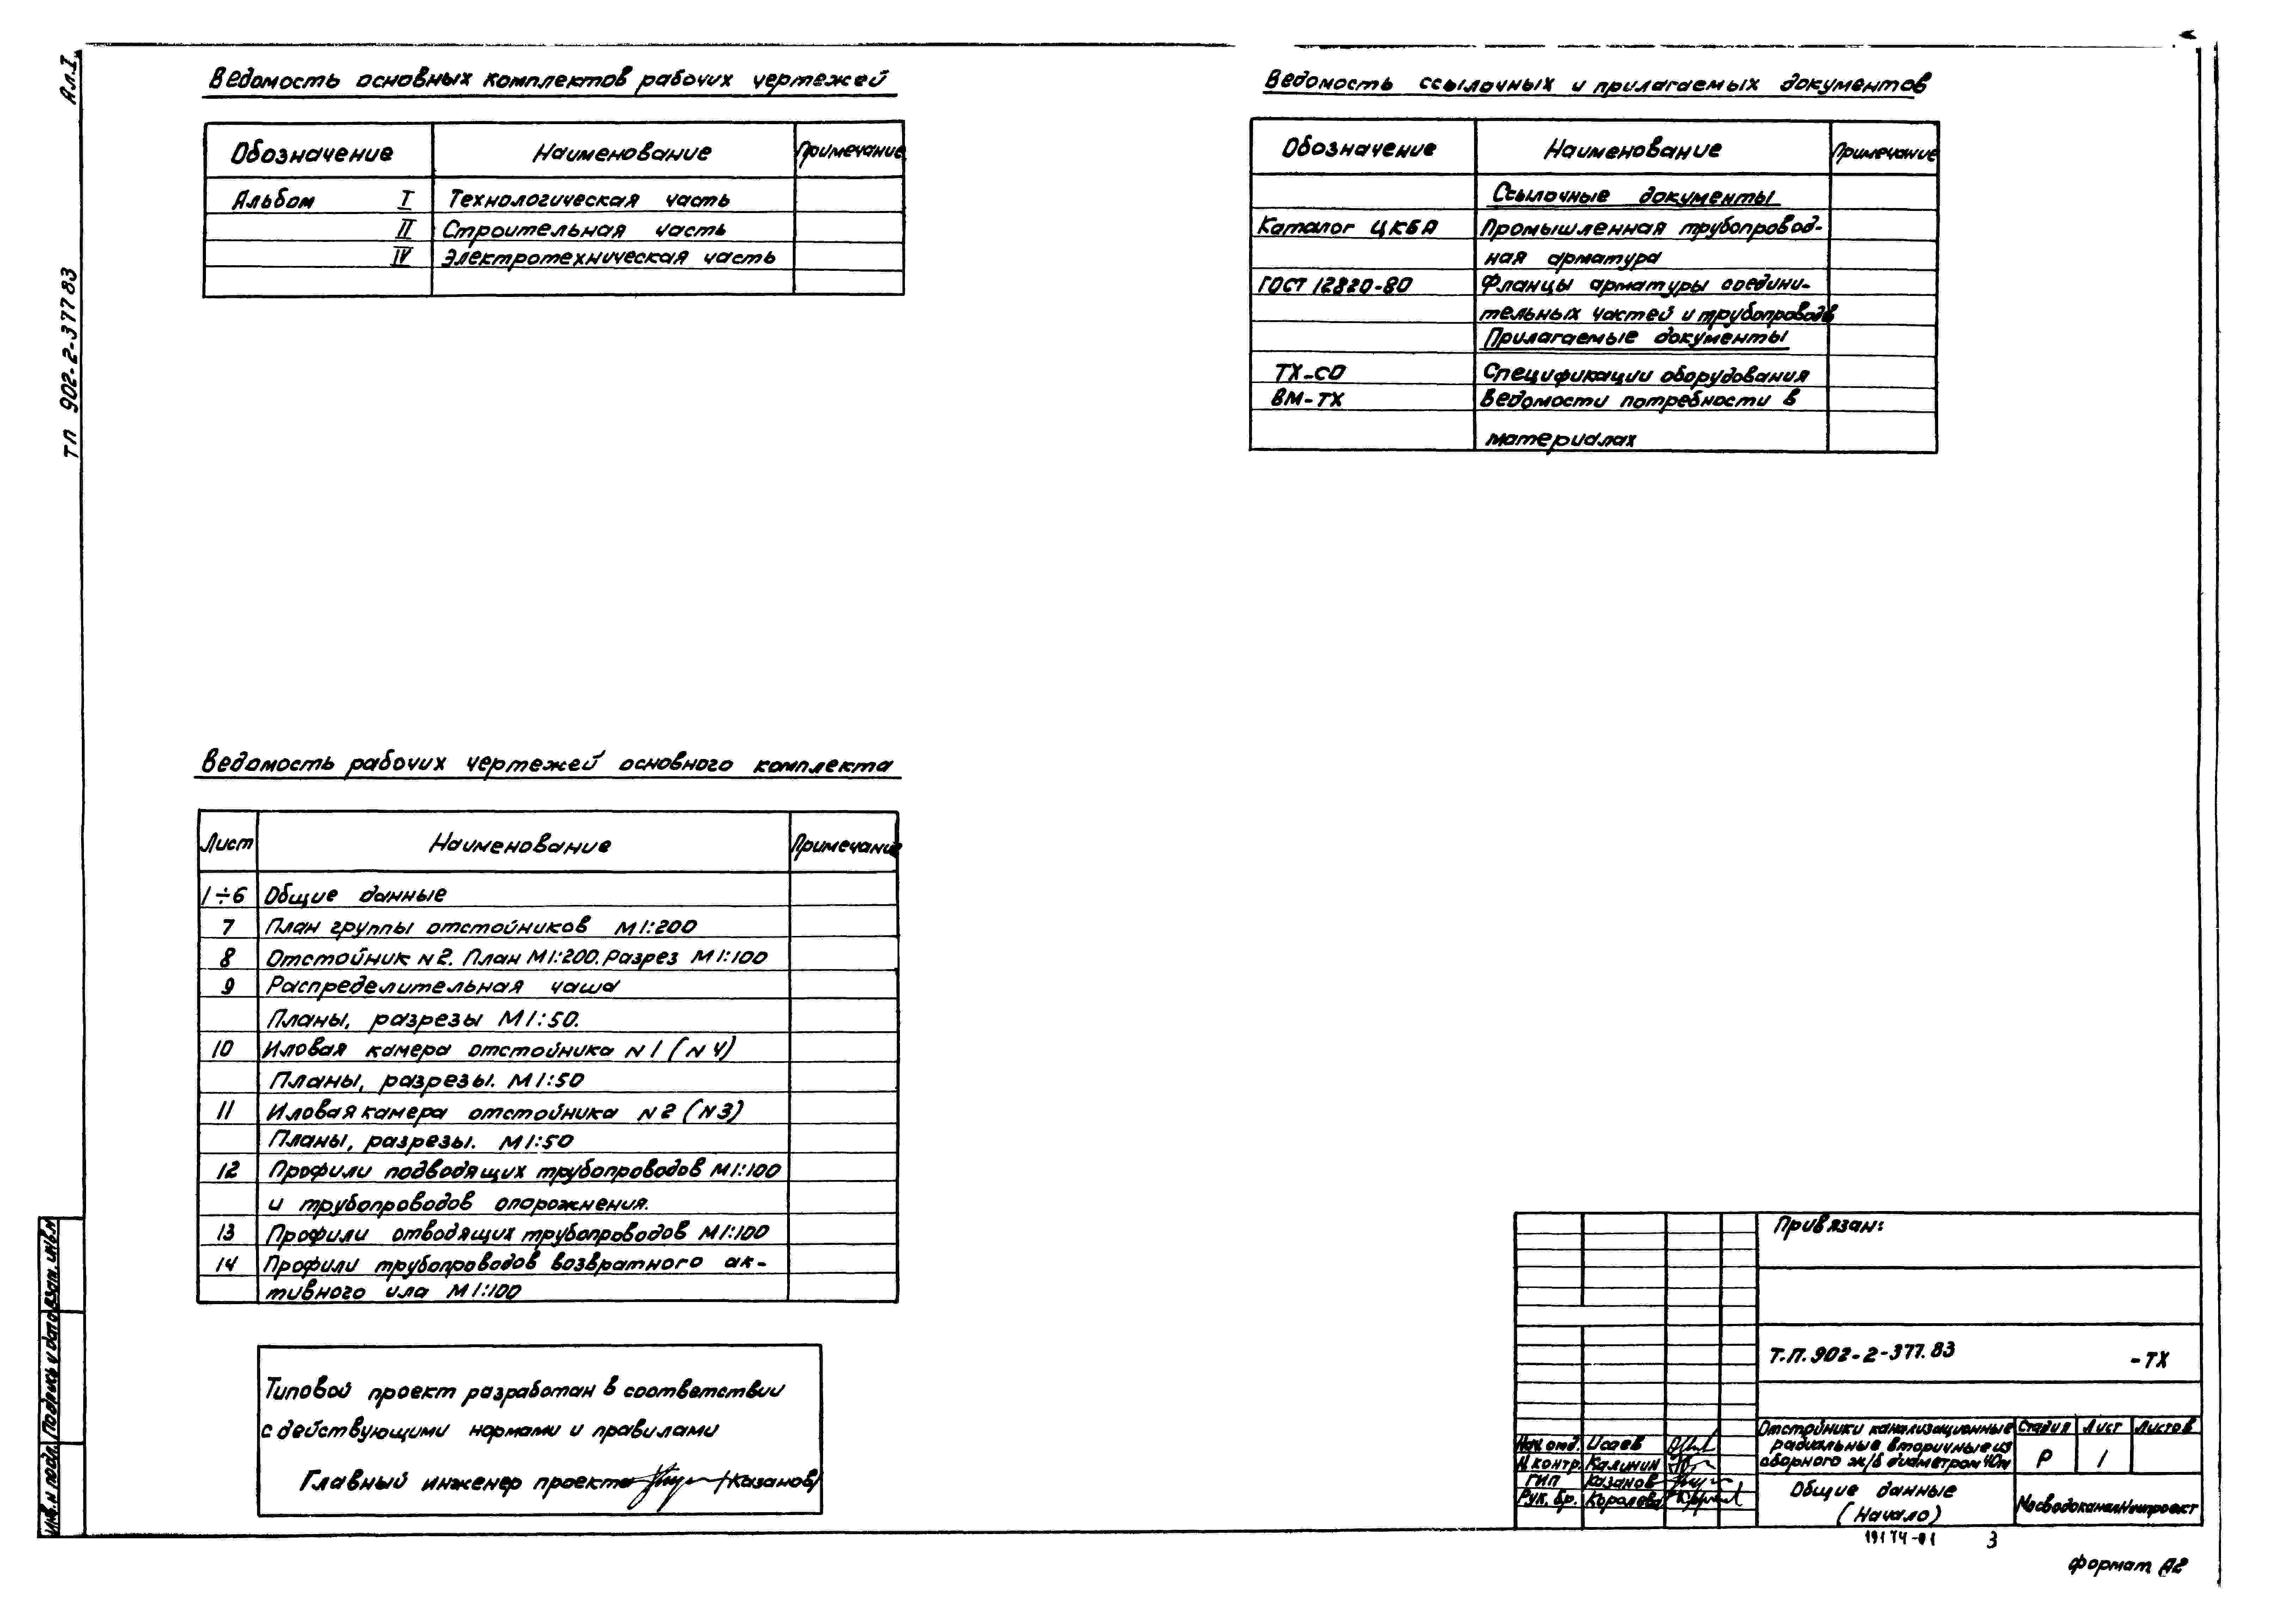 Ал.I
ТП 902-2-377 83
Ведомость основных комплектов рабочих чертежей
Обозначение Наименование Примечание
Альбом I Технологическая часть
II Строительная часть
IV Электротехническая часть
Ведомость ссылочных и прилагаемых документов
Обозначение Наименование Примечание
Ссылочные документы
Каталог ЦКБА Промышленная трубопровод-
ная арматура
ГОСТ 12820-80 Фланцы арматуры соедини-
тельных частей и трубопроводв
Прилагаемые документы
ТХ-СО Спецификации оборудования
ВМ-ТХ Ведомости потребности в
материалах
Ведомость рабочих чертежей основного комплекта
Лист Наименование Примечание
1÷6 Общие данные
7 План группы отстойников М1:200
8 Отстойник N2. План М1:200. Разрез М1:100
9 Распределительная чаша
Планы, разрезы М1:50.
10 Иловая камера отстойника N1 (N4)
Планы, разрезы. М1:50
11 Иловая камера отстойника N2 (N3)
Планы, разрезы. М1:50
12 Профили подводящих трубопроводов М1:100
и трубопроводов опорожнения.
13 Профили отводящих трубопроводов М1:100
14 Профили трубопроводов возвратного ак-
тивного ила М1:100
Типовой проект разработан в соответствии
с действующими нормами и правилами
Главный инженер проекта /Казанов/
Инв.N подл. Подпись и дата Взам. инв.N
Привязан:
Т.П. 902-2-377.83 -ТХ
Отстойники канализационные
радиальные вторичные из
сборного ж/б диаметром 40м
Стадия Лист Листов
Р 1
Нач. отд. Исаев
Н.контр. Калинин
ГИП Казанов
Рук. бр. Королева
Общие данные
(Начало)
МосводоканалНИИпроект
19174-01 3
формат А2